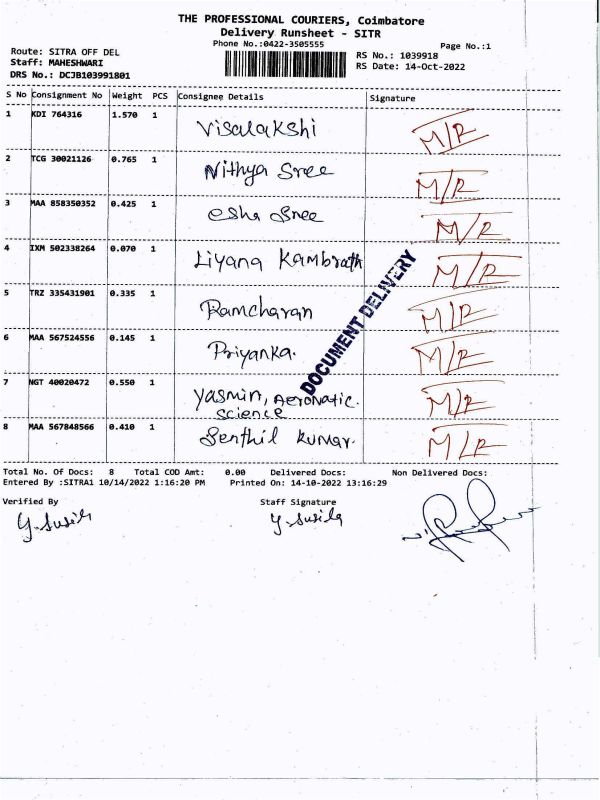 THE PROFESSIONAL COURIERS, Coimbatore
Delivery Runsheet - SITR
Phone No.:0422-3505555
Page No.:1
Route: SITRA OFF DEL
Staff: MAHESHWARI
DRS No.: DCJB103991801
RS No.: 1039918
RS Date: 14-Oct-2022
S No Consignment No Weight PCS Consignee Details Signature
1 KDI 764316 1.570 1 Visalakshi M/R
2 TCG 30021126 0.765 1 Nithya Sree M/R
3 MAA 858350352 0.425 1 esha Sree M/R
4 IXM 502338264 0.070 1 Liyana Kambrath M/R
5 TRZ 335431901 0.335 1 Ramcharan M/R
6 MAA 567524556 0.145 1 Priyanka. M/R
7 NGT 40020472 0.550 1 Yasmin, Aeronatic. M/R
science
8 MAA 567848566 0.410 1 Senthil Kumar. M/R
DOCUMENT DELIVERY
Total No. Of Docs: 8 Total COD Amt: 0.00 Delivered Docs: Non Delivered Docs:
Entered By :SITRA1 10/14/2022 1:16:20 PM Printed On: 14-10-2022 13:16:29
Verified By Staff Signature
Y. Susila Y. Susila